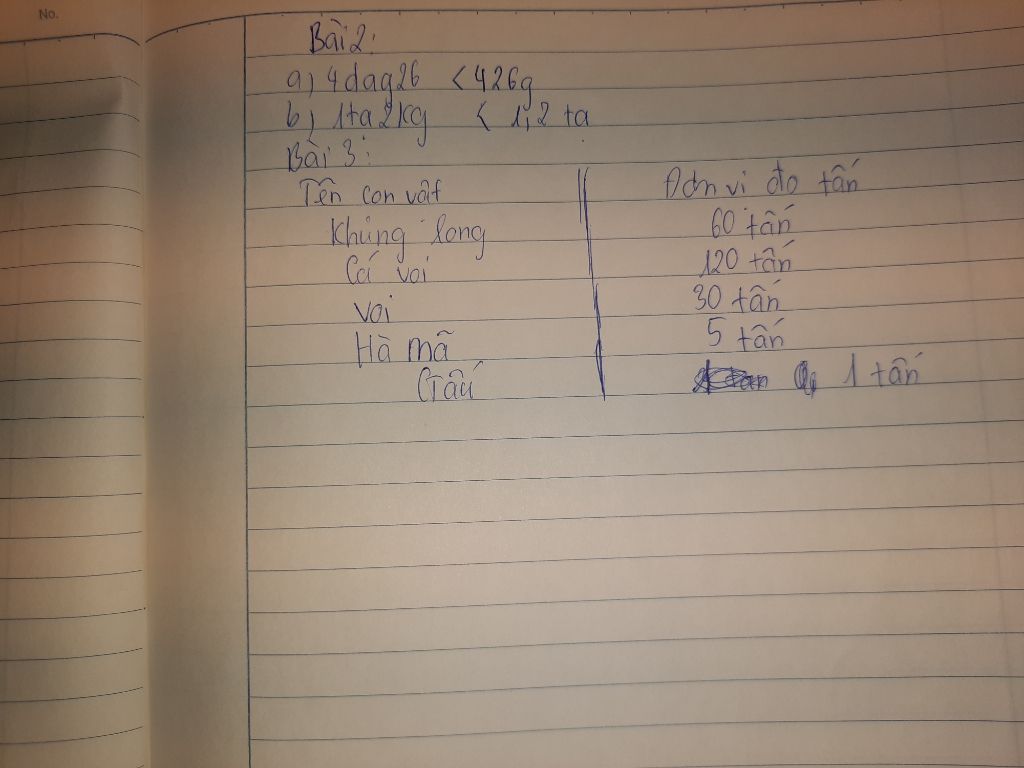 No.
Bài 2:
a) 4dag26 < 426g
b) 1ta 2kg < 1,2 ta
Bài 3:
Tên con vât Đơn vi đo tấn
Khủng long 60 tấn
Cá voi 120 tấn
voi 30 tấn
Hà mã 5 tấn
Gấu 1 tấn